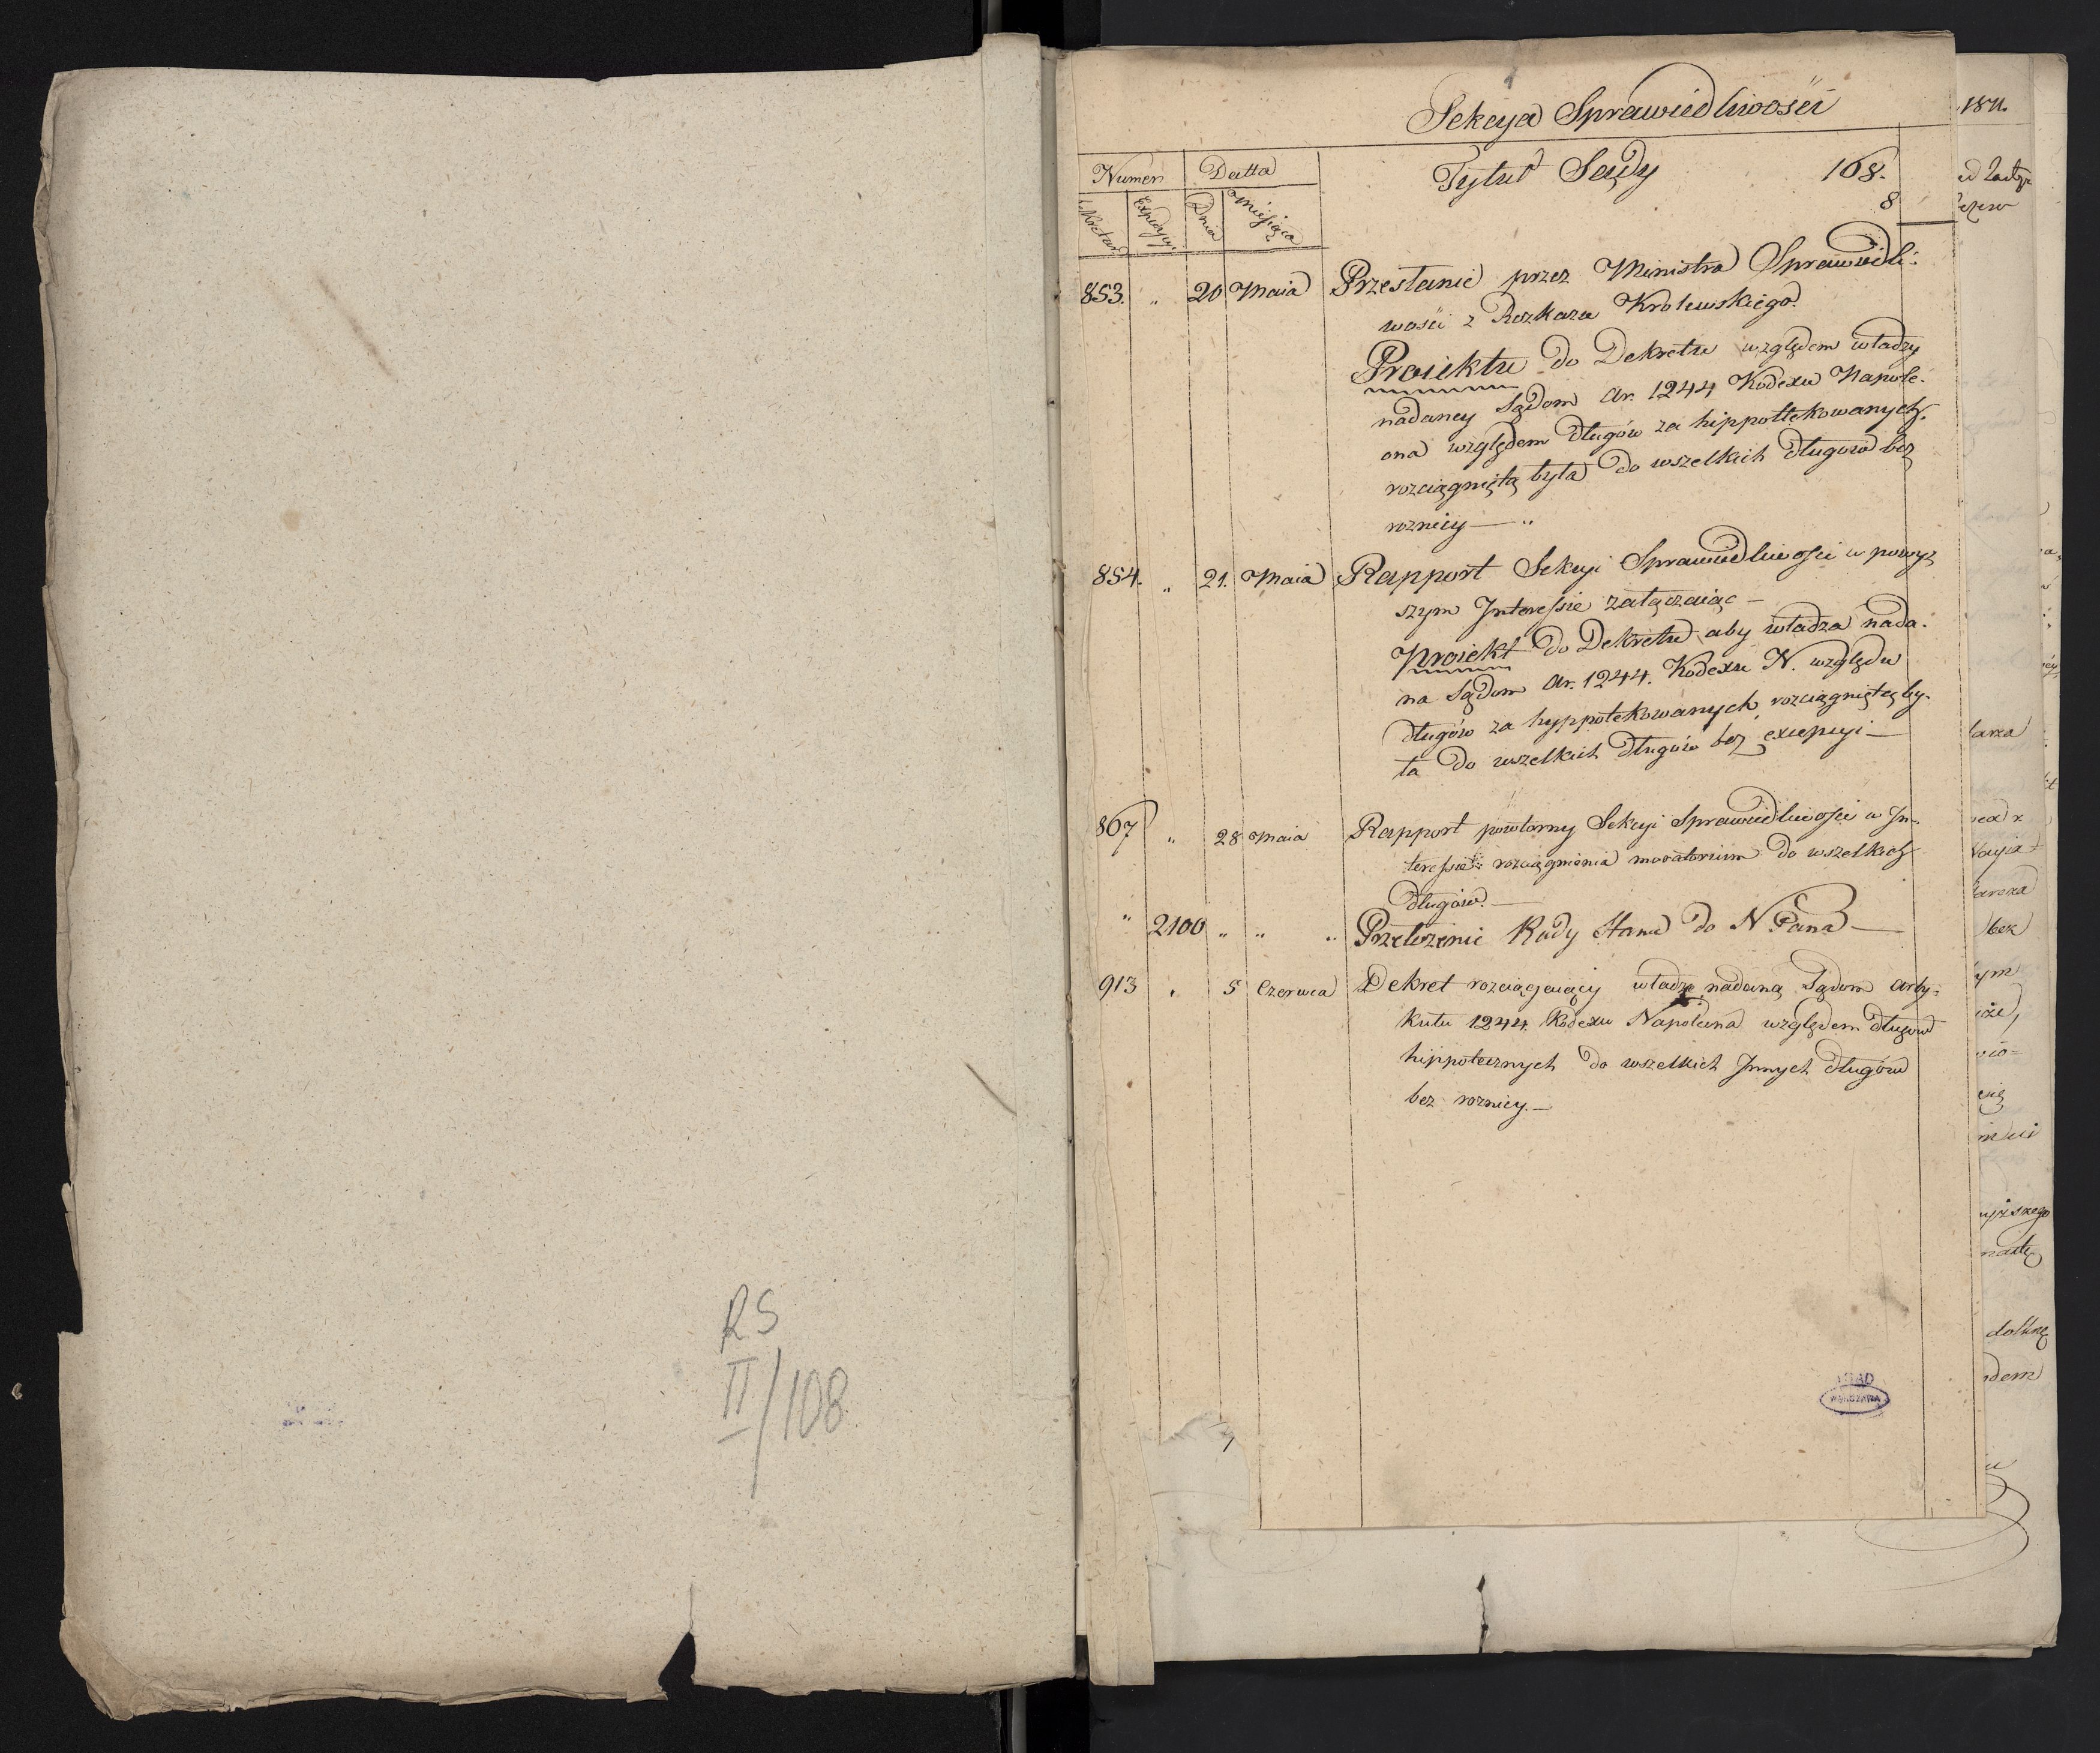 RS
II/108
Sekcya Sprawiedliwości
Numer Datta Tytuł Sądy 108.
Expedycyi Dnia miesiąca 8
853. „ 20 Maia Przesłanie przez Ministra Sprawiedli-
wości z Rozkazu Krolewskiego.
Proiektu do Dekretu względem władzy
nadaney Sądom Ar. 1244 Kodexu Napole-
ona względem długów za hippotekowanych,
rozciągniętą była do wszelkich długow bez
roznicy — „
854. „ 21. Maia Rapport Sekcyi Sprawiedliwości w powyz
szym Interessie załączaiąc —
Proiekt do Dekretu aby władza nada-
na Sądom Ar. 1244. Kodexu N. względu
długów za hyppotekowanych rozciągniętą by-
ła do wszelkich długów bez excepcyi —
867 „ 28 Maia Rapport powtorny Sekcyi Sprawiedliwości w In-
teressie rozciągnienia moratorium do wszelkich
długów. —
„ 2100 „ „ „ Przełożenie Rady Stanu do N Pana —
913 „ 5 Czerwca Dekret rozciągaiący władzę nadaną Sądom Arty-
kułu 1244 Kodexu Napoleona względem długow
hippotecznych do wszelkich Innych długów
bez roznicy. —
AGAD
WARSZAWA
1811.